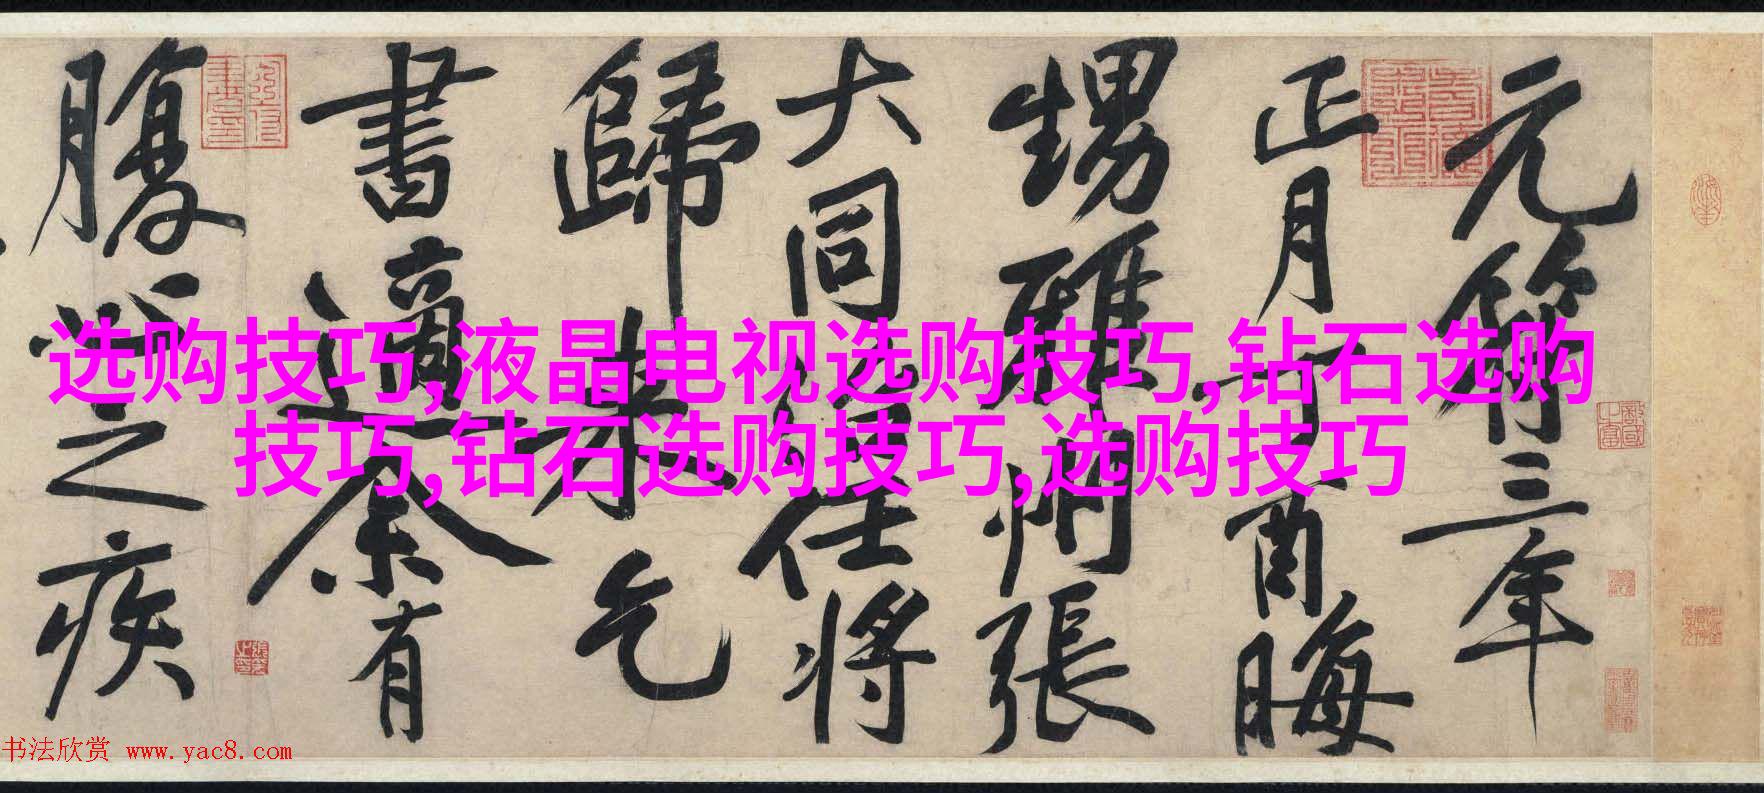 元符三年
正月丁酉晦
甥雅州張
大同治任將
歸來乞
書適余有
腹心之疾
选购技巧,液晶电视选购技巧,钻石选购
技巧,钻石选购技巧,选购技巧
书法欣赏 www.yac8.com